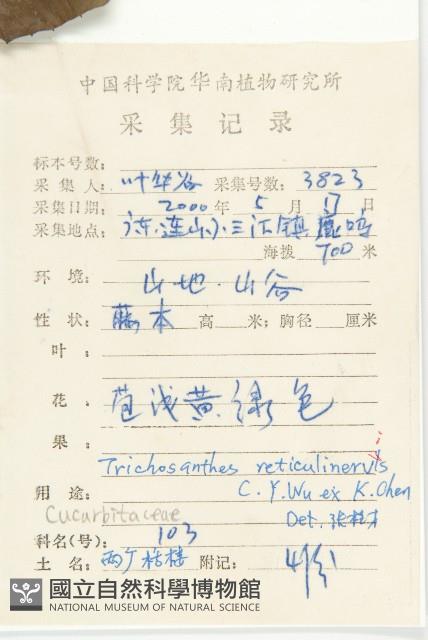 中国科学院华南植物研究所
采集记录
标本号数:
采集人: 叶华谷 采集号数: 3823
采集日期: 2000年 5 月 17 日
采集地点: 连山 三江镇
海拨 700 米
环境: 山地·山谷
性状: 藤本 高 米; 胸径 厘米
叶:
花: 苞浅黄绿色
果:
Trichosanthes reticulinervis
C. Y. Wu ex K. Chen
用途: Det.
Cucurbitaceae
科名(号): 103
土名: 两广栝楼 附记: 4份
國立自然科學博物館
NATIONAL MUSEUM OF NATURAL SCIENCE